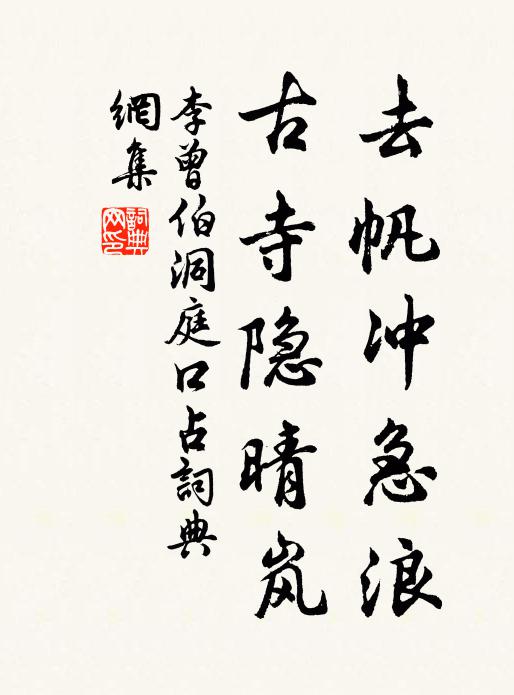 去帆冲急浪
古寺隐晴岚
李曾伯洞庭口占詞典
網集
詞典
网印